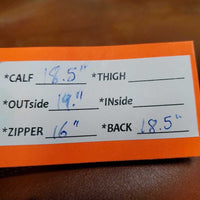 *CALF 18.5" *THIGH
*OUTside 19." *INside
*ZIPPER 16" *BACK 18.5"